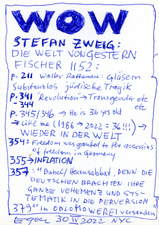 WOW
STEFAN ZWEIG:
DIE WELT VON GESTERN
FISCHER 1152:
p. 211 Walter Rathenau: Gläsern
Substanzlos jüdische Tragik
p. 341 Revolution → Transgender etc
- 344 etc
p. 345/346 → He is 36 yrs old
→ me (1986 → 2022 = 36!!!) →
WIEDER IN DER WELT
354: Freedom granted to the assassins
of freedom in Germany
355 → INFLATION
357: "Babel Hexensabbat, DENN DIE
DEUTSCHEN BRACHTEN IHRE
GANZE VEHEMENZ UND SYS-
TEMATIK IN DIE PERVERSION
377 in ODLO MOWEREI versanden
30 IV 2022 NYC